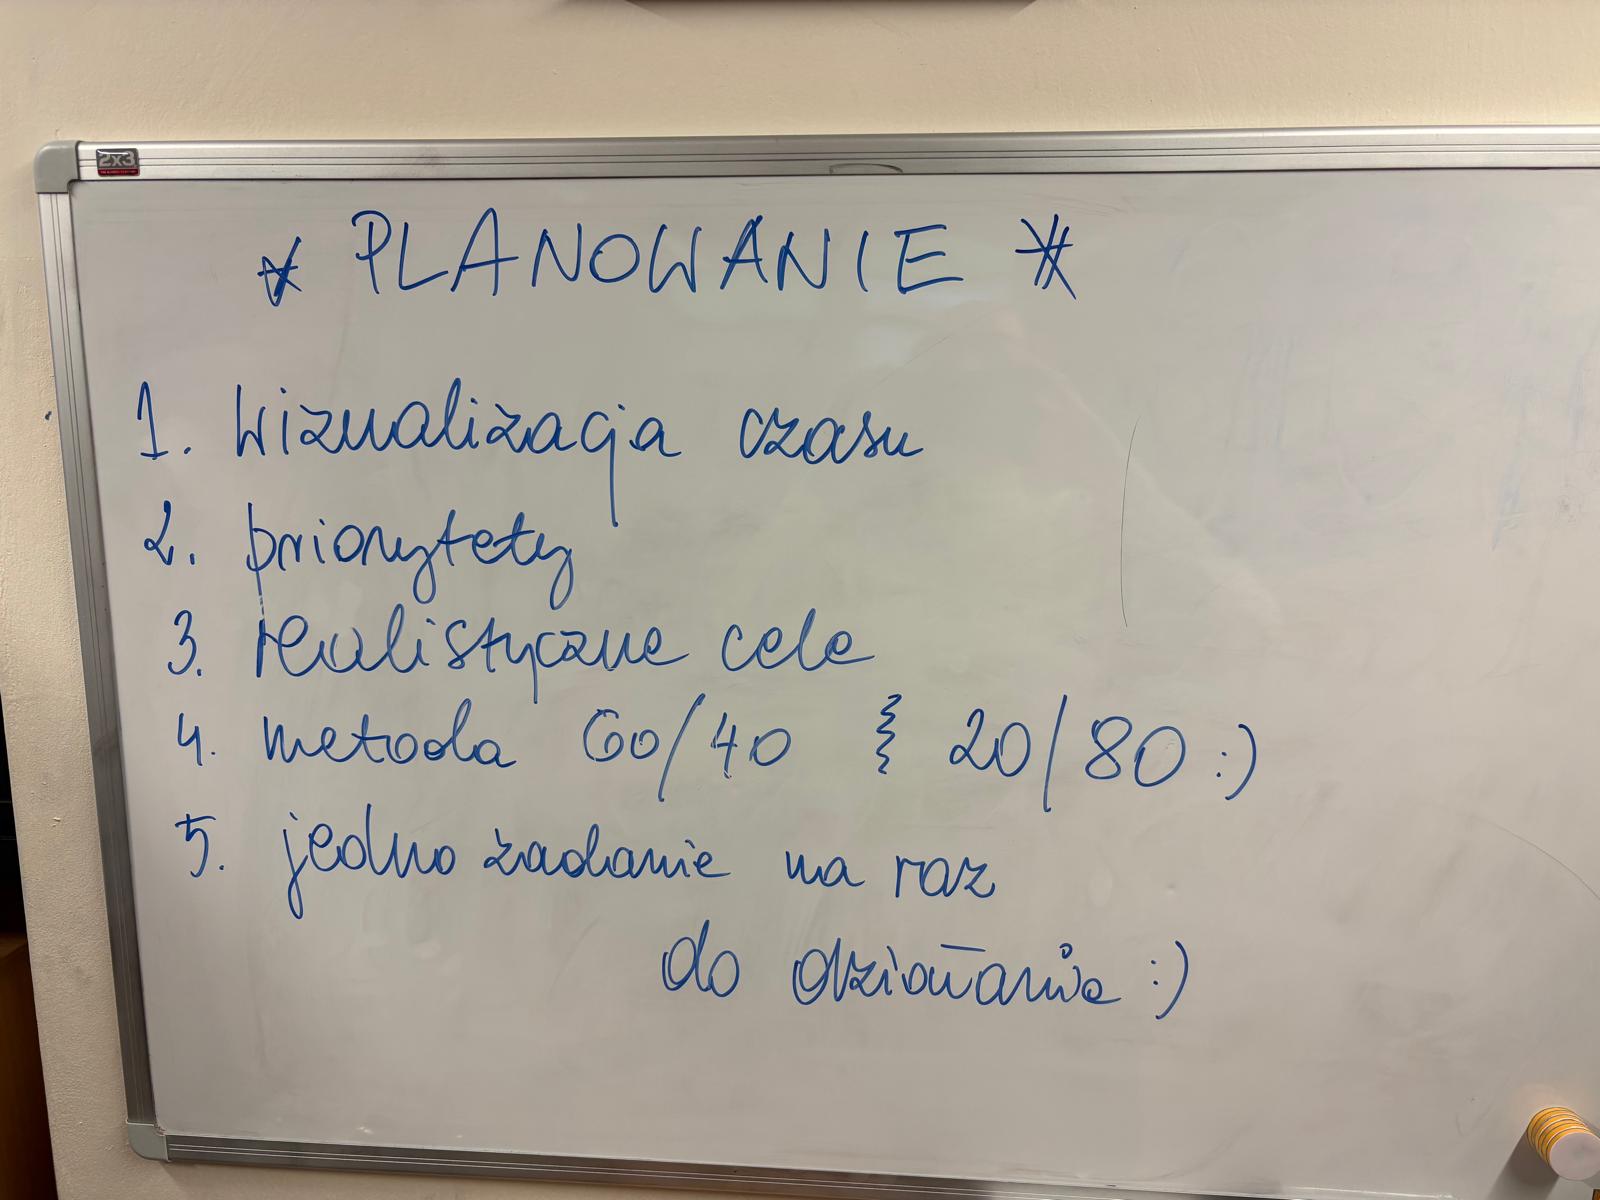 2x3
* PLANOWANIE *
1. wizualizacja czasu
2. priorytety
3. realistyczne cele
4. metoda 60/40 } 20/80 :)
5. jedno zadanie na raz
do działania :)